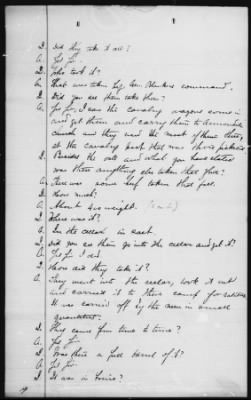 Q. Did they take it all?
A. Yes Sir.
Q. Who took it?
A. That was taken by Gen. Blenkers command.
Q. Did you see them take them?
A. Yes Sir, I saw the cavalry wagons come in
and get them and carry them to Annandale
church and they used the most of them there,
at the cavalry park that was there picketed
Q. Besides the oats and what you have stated
was there anything else taken that fall?
A. There was some beef taken that fall.
Q. How much?
A. About 400 weight.
Q. Where was it?
A. In the cellar in cask.
Q. Did you see them go into the cellar and get it?
A. Yes Sir I did.
Q. How did they take it?
A. They went into the cellar, took it out
and carried it to their camp for
It was carried off by the men in small
quantities.
Q. They came from time to time?
A. Yes Sir.
Q. Was there a full barrel of it?
A. Yes Sir.
Q. It was in